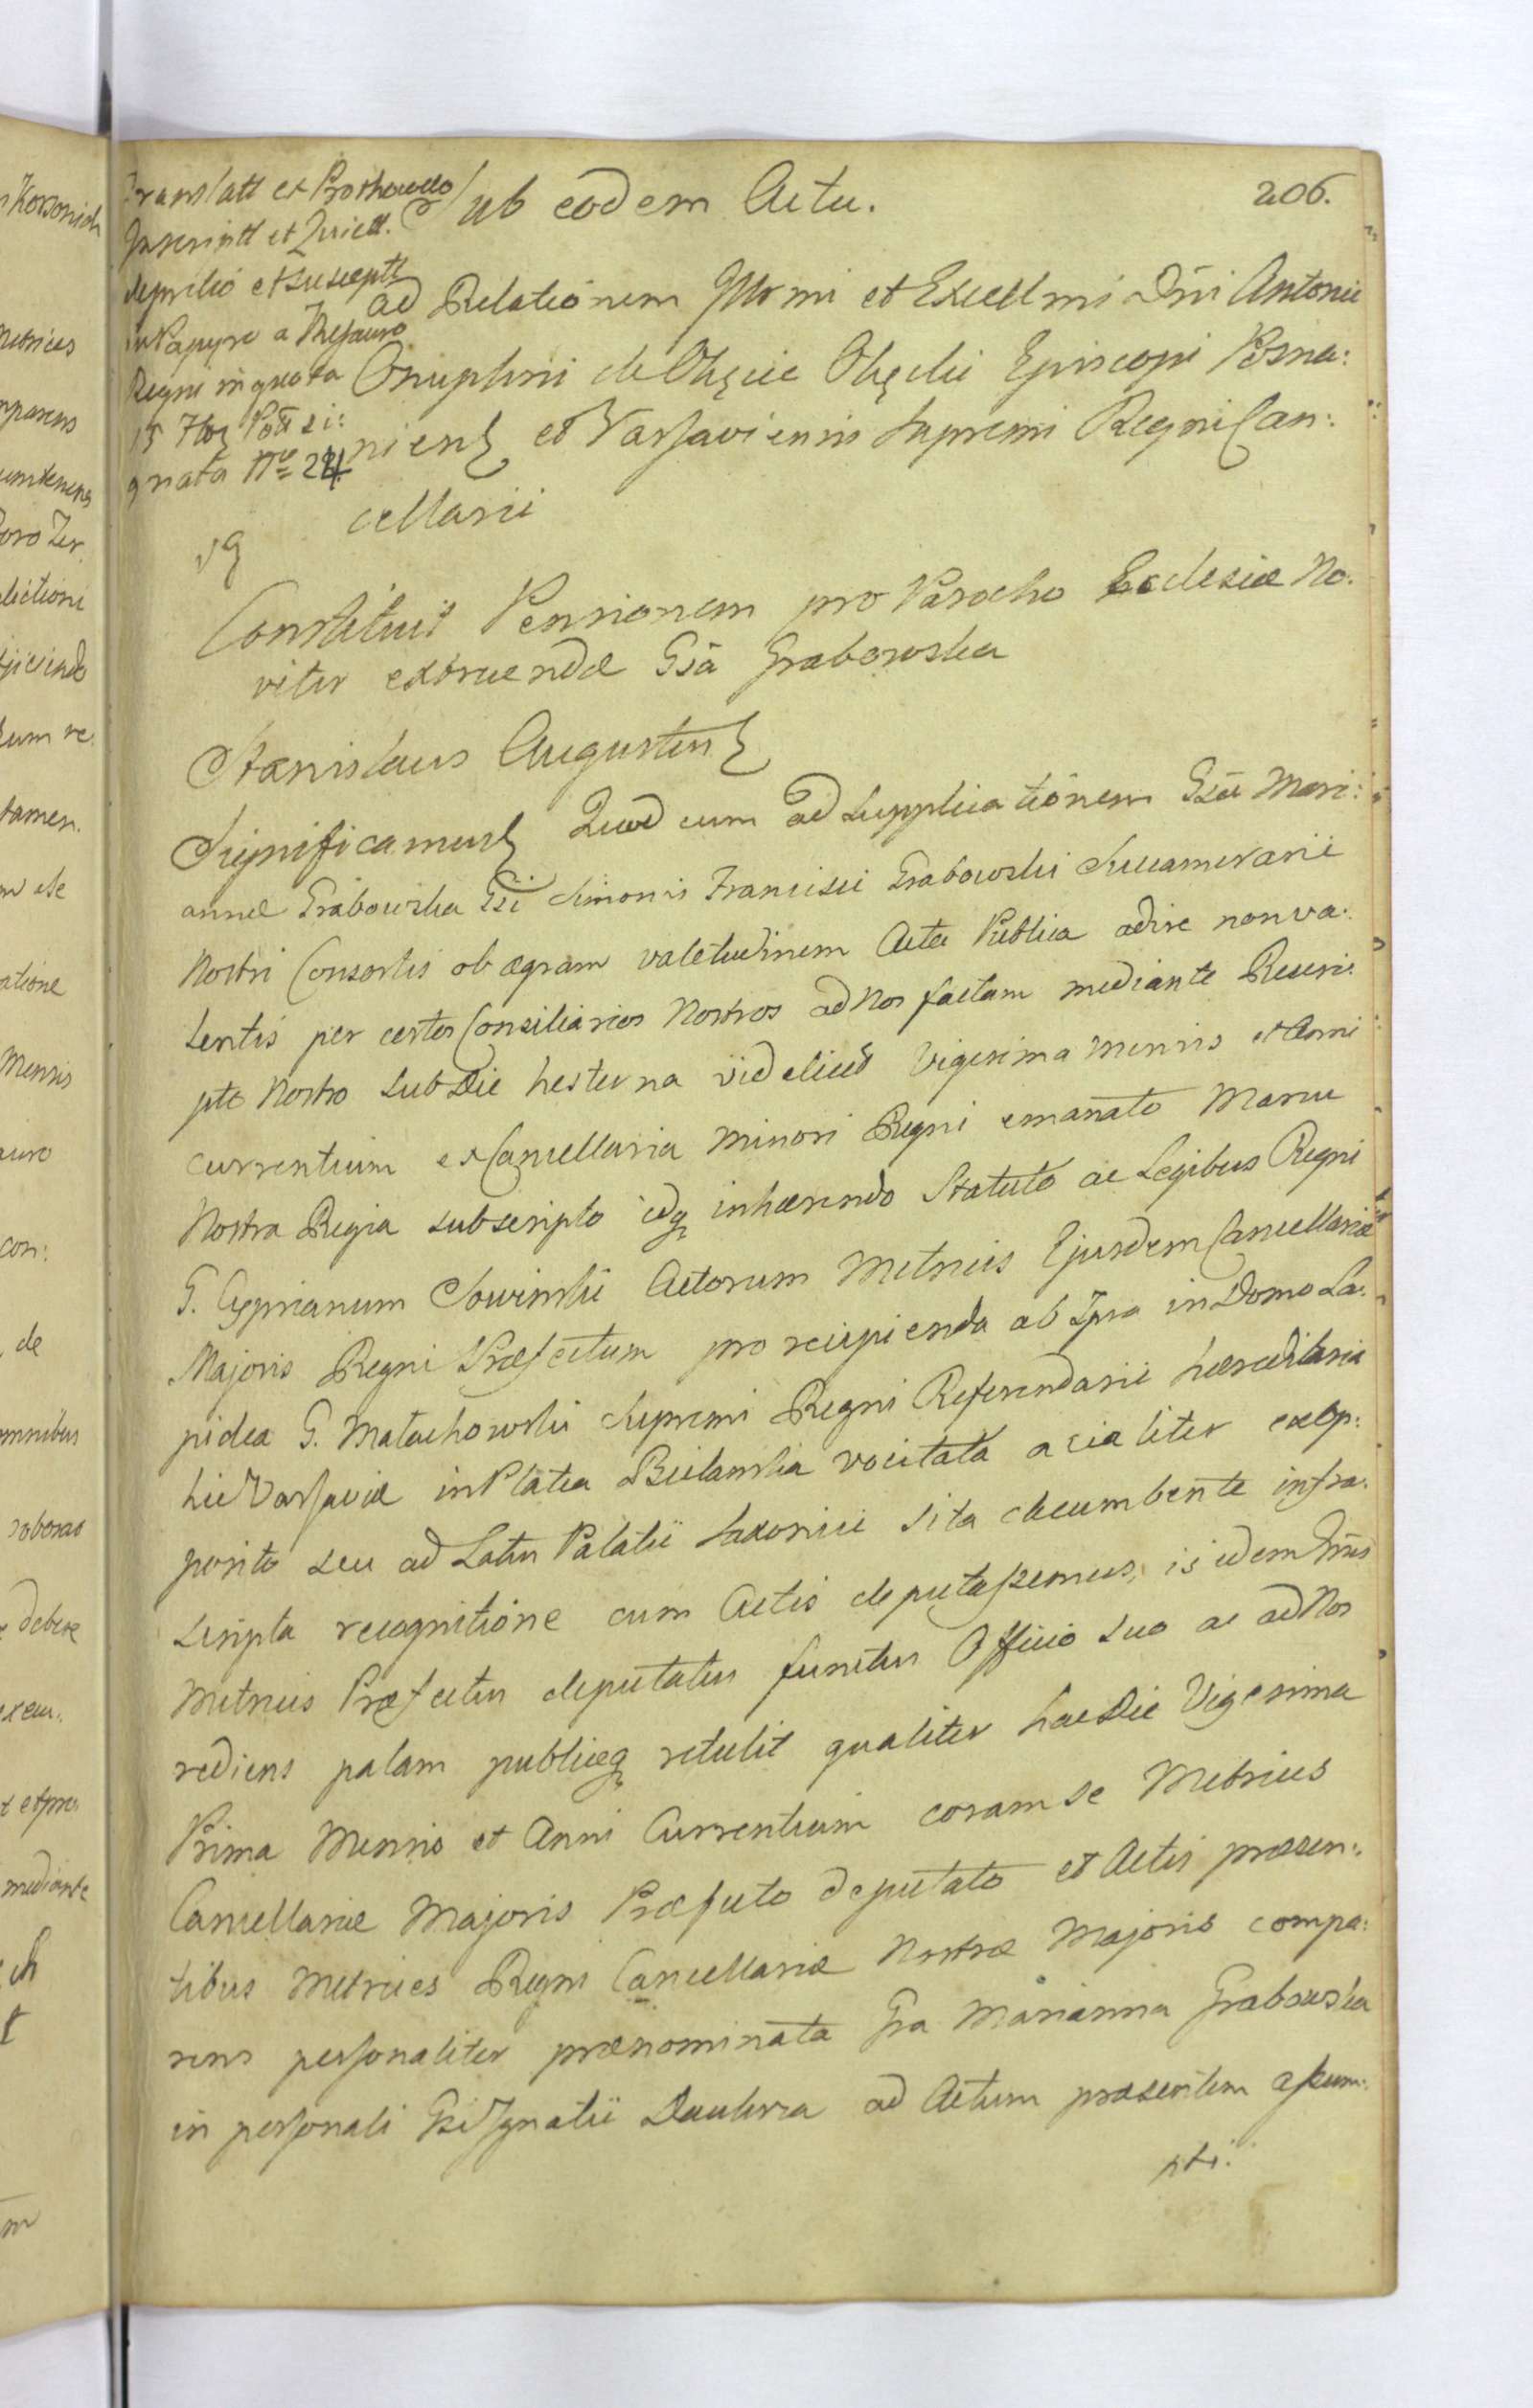 206.
Sub eodem Actu.
Translatt ex Prothocollo
Inscriptt et
deposito et suscepttt
in Papyro a Thesauro
Regni in quota
15 flor Poll si:
gnata Nro 24
ad Relationem Illrmi et Excellmi Dni Antonii
Onuphrii de Okęcie Okęcki Episcopi Posna:
niens et Varsaviensis Supremi Regni Can:
cellarii
Constituit Pensionem pro Parocho Ecclesiæ No:
viter extruendæ Gsā Grabowska
Stanislaus Augustus
Significamus Quod cum ad Supplicationem Gsæ Mari:
annæ Grabowska Gsi Simonis Francisci Grabowski Succamerarii
Nostri Consortis ob ægram valetudinem Acta Publica adire non va:
lentis per certos Consiliarios Nostros ad Nos factam mediante Rescri:
pto Nostro sub Die hesterna videlicet Vigesima mensis et Anni
currentium ex Cancellaria Minori Regni emanato Manu
Nostra Regia subscripto idq inhærendo Statuto ac Legibus Regni
G. Cyprianum Sowinski Actorum Metrices Ejusdem Cancellariæ
Majoris Regni Præfectum pro recipienda ab Ipsa in Domo La:
pidea G. Małachowski Supremi Regni Referendarii hæreditaria
hic Varsaviæ in Platea Bielanska vocitata acialiter exop:
posito seu ad Latus Palatii Saxonici sita decumbente infra:
scripta recognitione cum Actis deputassemus, is idem Gnus
Metrices Præfectus deputatus functus Officio suo ac ad Nos
rediens palam publiceq retulit qualiter hac Die Vigesima
Prima Mensis et Anni Currentium coram se Metrices
Cancellariæ Majoris Præfecto deputato et Actis præsen:
tibus Metrices Regni Cancellariæ Nostræ Majoris compa:
rens personaliter prænominata Gsa Marianna Grabowska
in personali Gsi Ignatii ad Actum præsentem assum:
pti